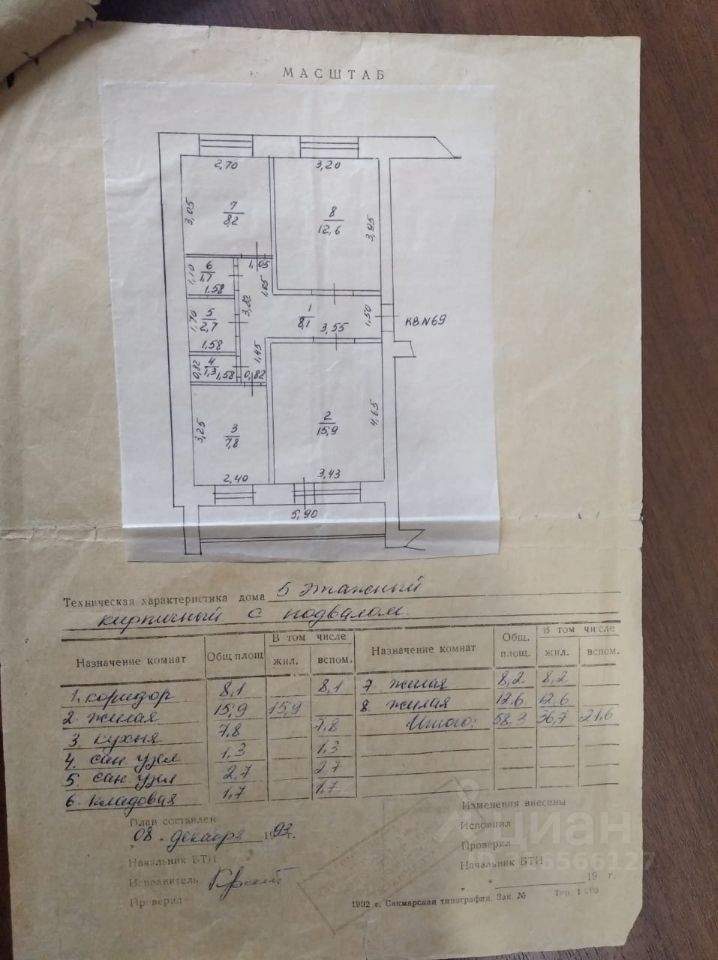 МАСШТАБ
2,70
3,20
3,05
7
8,2
8
12,6
3,95
6
1,7
1,10
1,58
1,05
1,65
3,22
1
8,1
3,55
1,50
КВ.N69
5
2,7
1,70
1,58
1,45
4
1,3
0,82
1,58
0,82
3,25
3
7,8
2
15,9
4,65
2,40
3,43
5,90
Техническая характеристика дома 5 этажный
кирпичный с подвалом.
Назначение комнат Общ. площ. В том числе жил. вспом. Назначение комнат Общ. площ. В том числе жил. вспом.
1. коридор 8,1 8,1 7 жилая 8,2 8,2
2. жилая 15,9 15,9 8 жилая 12,6 12,6
3 кухня 7,8 7,8 Итого: 58,3 36,7 21,6
4. сан узел 1,3 1,3
5. сан узел 2,7 2,7
6. кладовая 1,7 1,7
План составлен
"08" декабря 1993г.
Начальник БТИ
Исполнитель
Проверил
Изменения внесены
Исполнил
Проверил
Начальник БТИ
" " 19 г.
1992 г. Сакмарская типография. Зак. № Тир.
циан